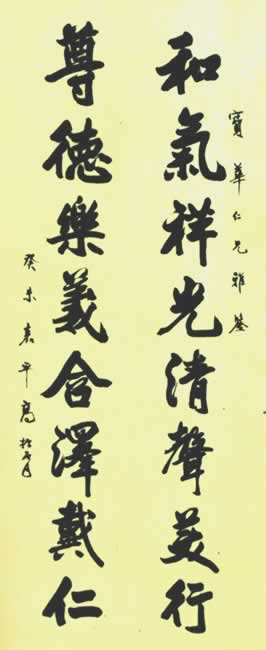 寶華仁兄雅鑒
和氣祥光清聲美行
尊德樂義含澤戴仁
癸未袁平高